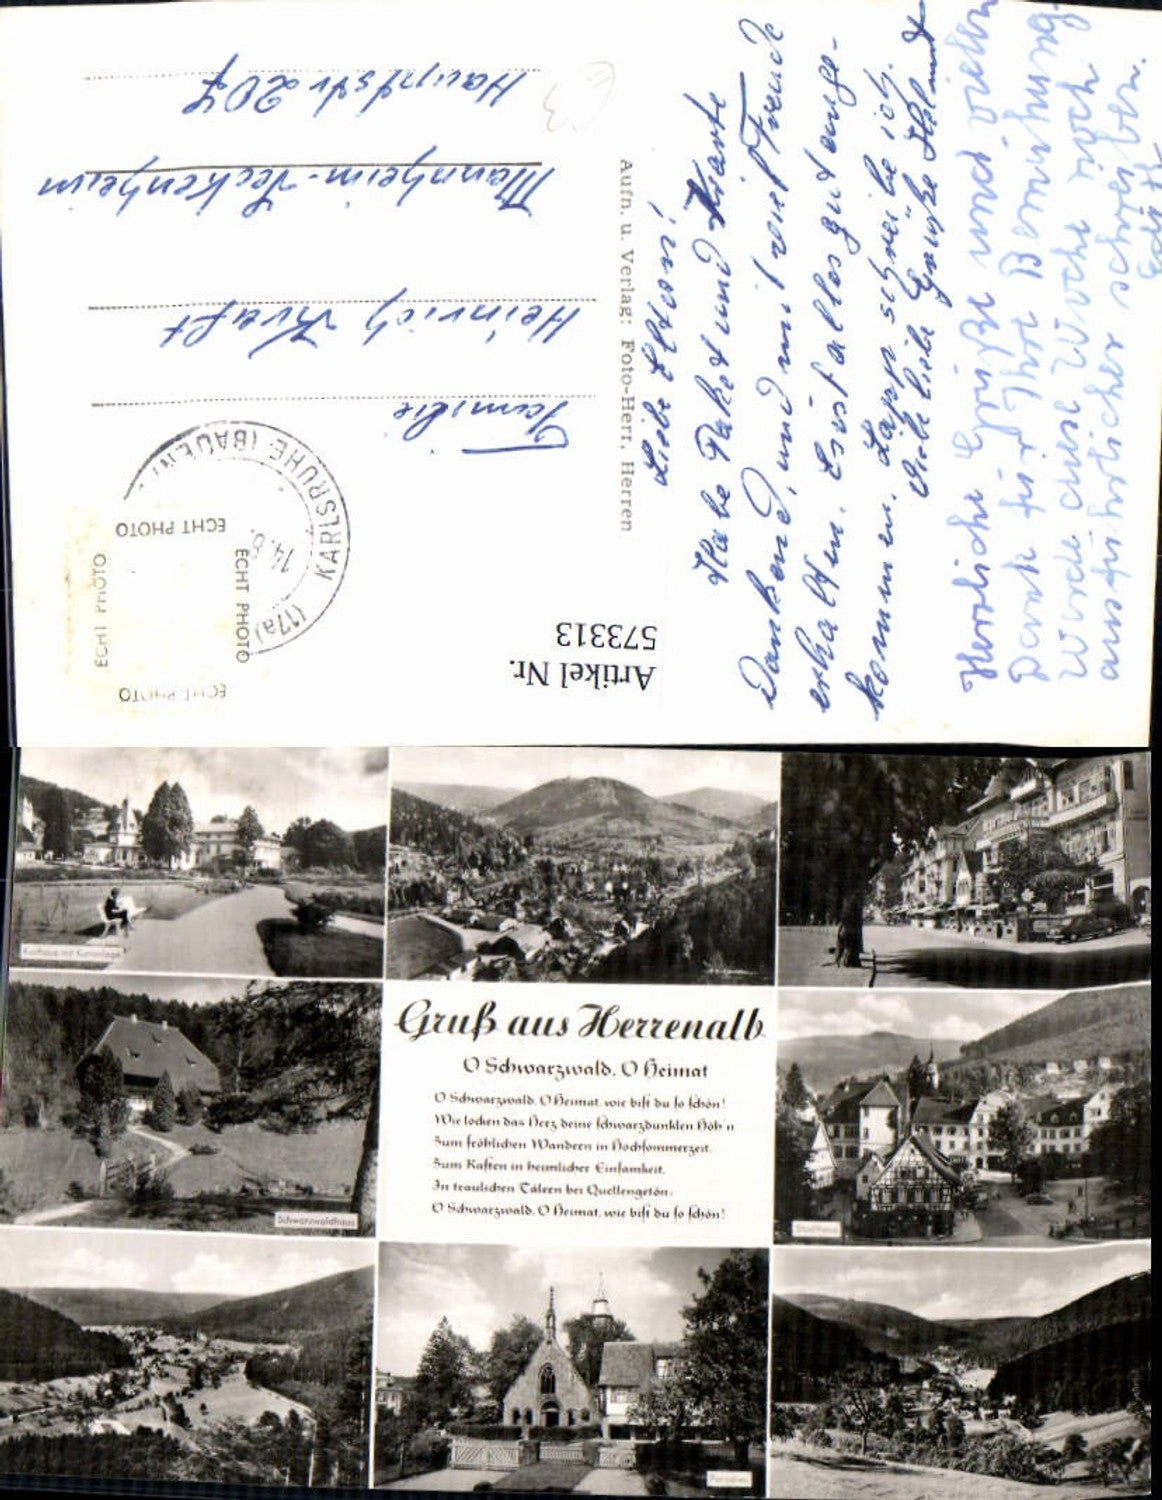 Familie
Heinrich Kraft
Mannheim-Seckenheim
Hauptstr 207
Aufn. u. Verlag: Foto-Herr, Herren
KARLSRUHE (BADEN)
(17a)
14.8.
ECHT PHOTO
ECHT PHOTO
ECHT PHOTO
ECHT PHOTO
Artikel Nr.
573313
Liebe Eltern!
Habe Paket und Karte
dankend, und mit viel Freude
erhalten. Es ist alles gut ange-
kommen. schreibe ich.
Viele liebe Grüße Helmut
Herzliche Grüße und vielen
Dank für Ihre Bemühung.
Werde diese Woche noch
ausführlicher schreiben.
Edith
Kurhaus mit Kuranlage
Gruß aus Herrenalb
O Schwarzwald, O Heimat
O Schwarzwald, O Heimat, wie bist du so schön!
Wie locken das Herz deine schwarzdunklen Höh'n
Zum fröhlichen Wandern in Hochsommerzeit,
Zum Rasten in heimlicher Einsamkeit,
In traulichen Tälern bei Quellengetön:
O Schwarzwald, O Heimat, wie bist du so schön!
Schwarzwaldhaus